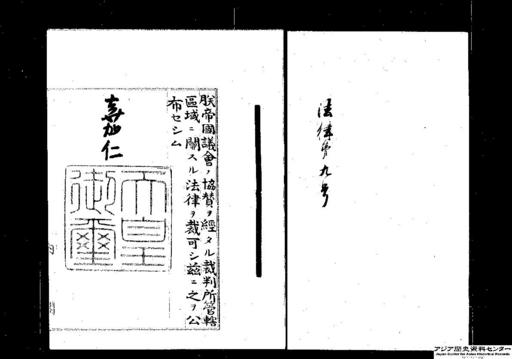 法律第九号
朕帝國議會ノ協賛ヲ經タル裁判所管轄
區域ニ關スル法律ヲ裁可シ茲ニ之ヲ公
布セシム
嘉仁
天皇
御璽
アジア歴史資料センター
Japan Center for Asian Historical Records